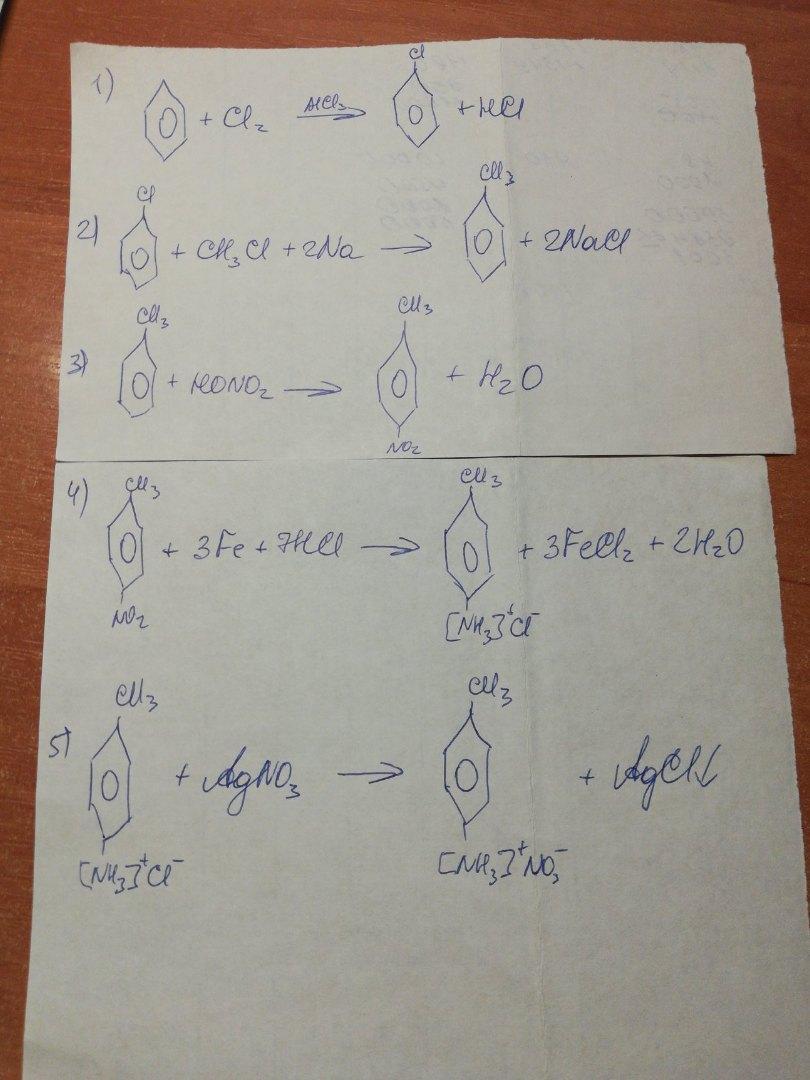 1) + Cl₂ AlCl₃ → Cl + HCl
2) Cl + CH₃Cl + 2Na → CH₃ + 2NaCl
3) CH₃ + HONO₂ → CH₃ NO₂ + H₂O
4) CH₃ NO₂ + 3Fe + 7HCl → CH₃ [NH₃]⁺Cl⁻ + 3FeCl₂ + 2H₂O
5) CH₃ [NH₃]⁺Cl⁻ + AgNO₃ → CH₃ [NH₃]⁺NO₃⁻ + AgCl↓